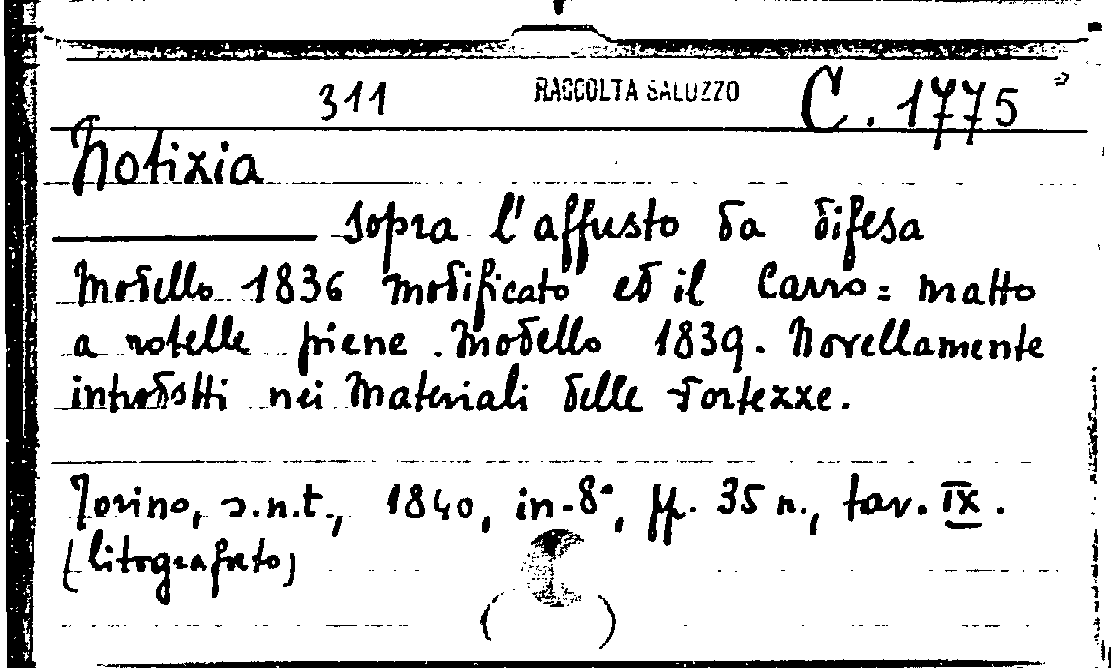 311 RACCOLTA SALUZZO C. 1775
Notizia
sopra l'affusto da difesa
Modello 1836 modificato ed il Carro = matto
a rotelle piene. Modello 1839. Novellamente
introdotti nei Materiali delle Fortezze.
Torino, s.n.t., 1840, in-8°, pp. 35 n., tav. IX.
(litografato)